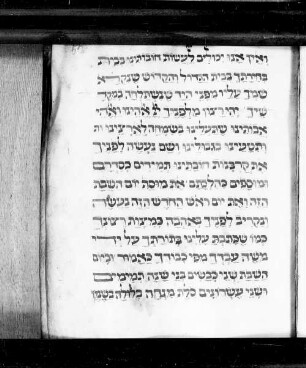 ואין אנו יכולים לעשות חובותינו בבית
בחירתך בבית הגדול והקדוש שנקרא
שמך עליו מפני היד שנשתלחה במקד
שיך יהי רצון מלפניך אלהינו ואלהי
אבותינו שתעלינו בשמחה לארצינו ות
ותטעינו בגבולינו ושם נעשה לפניך
את קרבנות חובותינו תמידים כסדרם
ומוספים כהלכתם את מוסף יום השבת
הזה ואת יום ראש החדש הזה נעשה
ונקריב לפניך באהבה כמצות רצונך
כמו שכתבת עלינו בתורתך על ידי
משה עבדך מפי כבודך כאמור וביום
השבת שני כבשים בני שנה תמימים
ושני עשרונים סלת מנחה בלולה בשמן